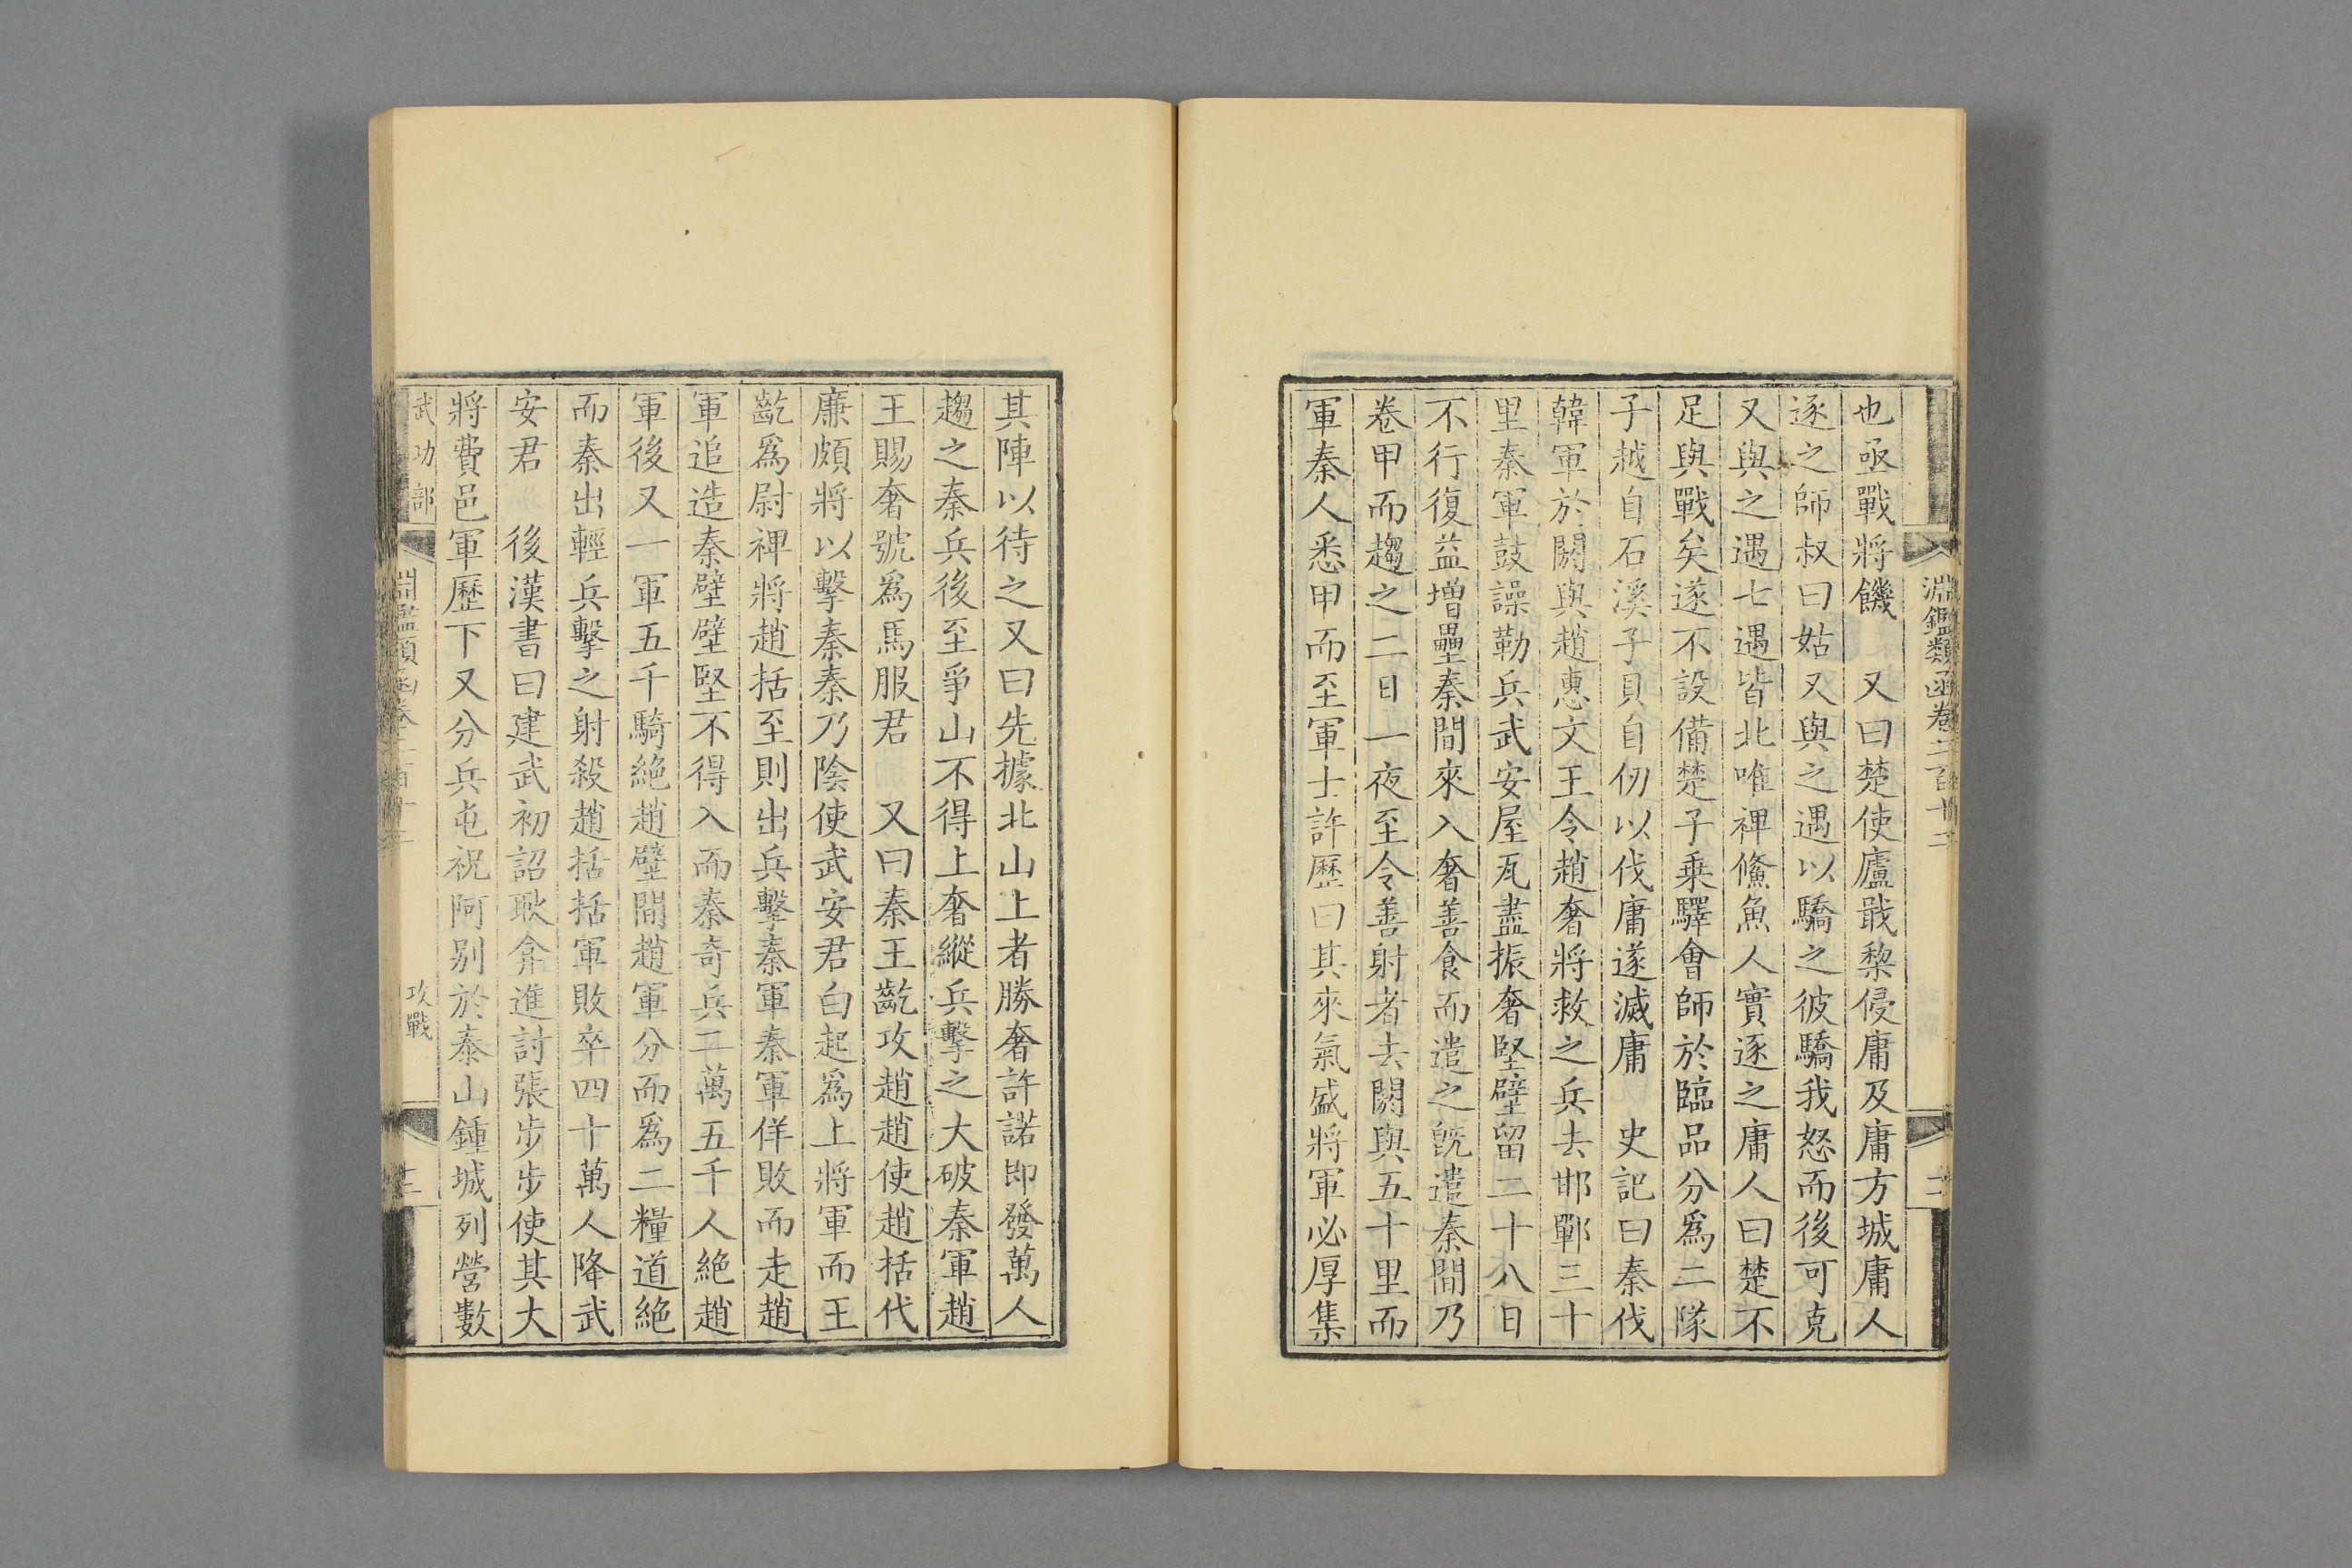 淵鑑類函卷二百十二
二
也亟戰將饑　又曰楚使廬戢黎侵庸及庸方城庸人
逐之師叔曰姑又與之遇以驕之彼驕我怒而後可克
又與之遇七遇皆北唯裨鯈魚人實逐之庸人曰楚不
足與戰矣遂不設備楚子乗驛會師於臨品分爲二隊
子越自石溪子貝自仞以伐庸遂滅庸　史記曰秦伐
韓軍於閼與趙惠文王令趙奢將救之兵去邯鄲三十
里秦軍鼓譟勒兵武安屋瓦盡振奢堅壁留二十八日
不行復益增壘秦間來入奢善食而遣之旣遣秦間乃
卷甲而趨之二日一夜至令善射者去閼與五十里而
軍秦人悉甲而至軍士許歷曰其來氣盛將軍必厚集
其陣以待之又曰先據北山上者勝奢許諾卽發萬人
趨之秦兵後至爭山不得上奢縱兵擊之大破秦軍趙
王賜奢號爲馬服君　又曰秦王齕攻趙趙使趙括代
廉頗將以擊秦秦乃陰使武安君白起爲上將軍而王
齕爲尉裨將趙括至則出兵擊秦軍秦軍佯敗而走趙
軍追造秦壁壁堅不得入而秦奇兵二萬五千人絶趙
軍後又一軍五千騎絶趙壁間趙軍分而爲二糧道絶
而秦出輕兵擊之射殺趙括括軍敗卒四十萬人降武
安君　後漢書曰建武初詔耿弇進討張步步使其大
將費邑軍歷下又分兵屯祝阿别於泰山鍾城列營數
武功部
淵鑑類函卷二百十二
攻戰